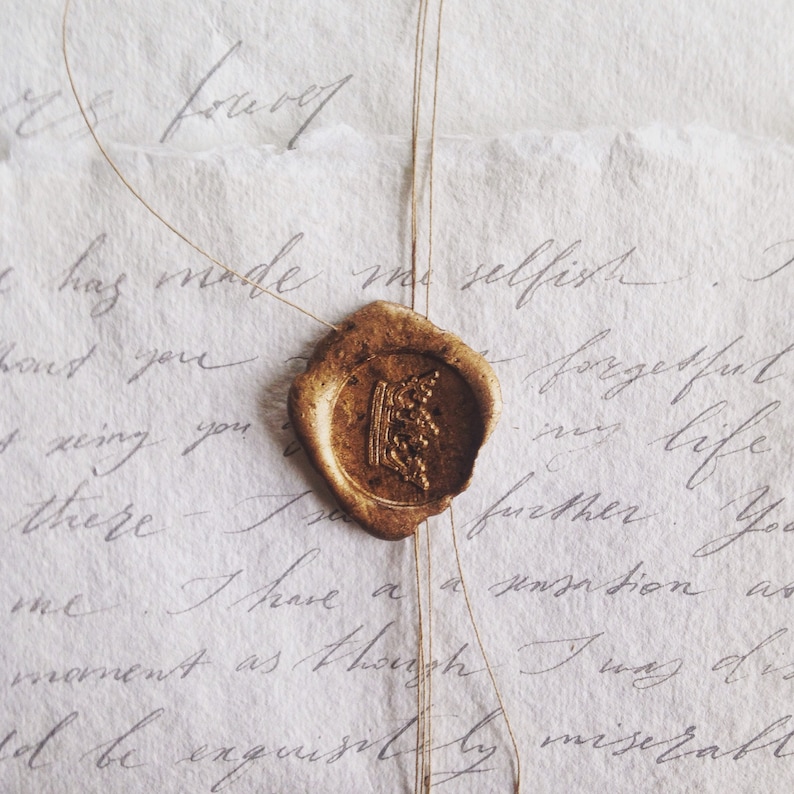 rs forever
has made me selfish. I
you forgetful
seeing you my life
there – I see further. You
me. I have a a sensation as
moment as though I was dis
ld be exquisitely miserabl